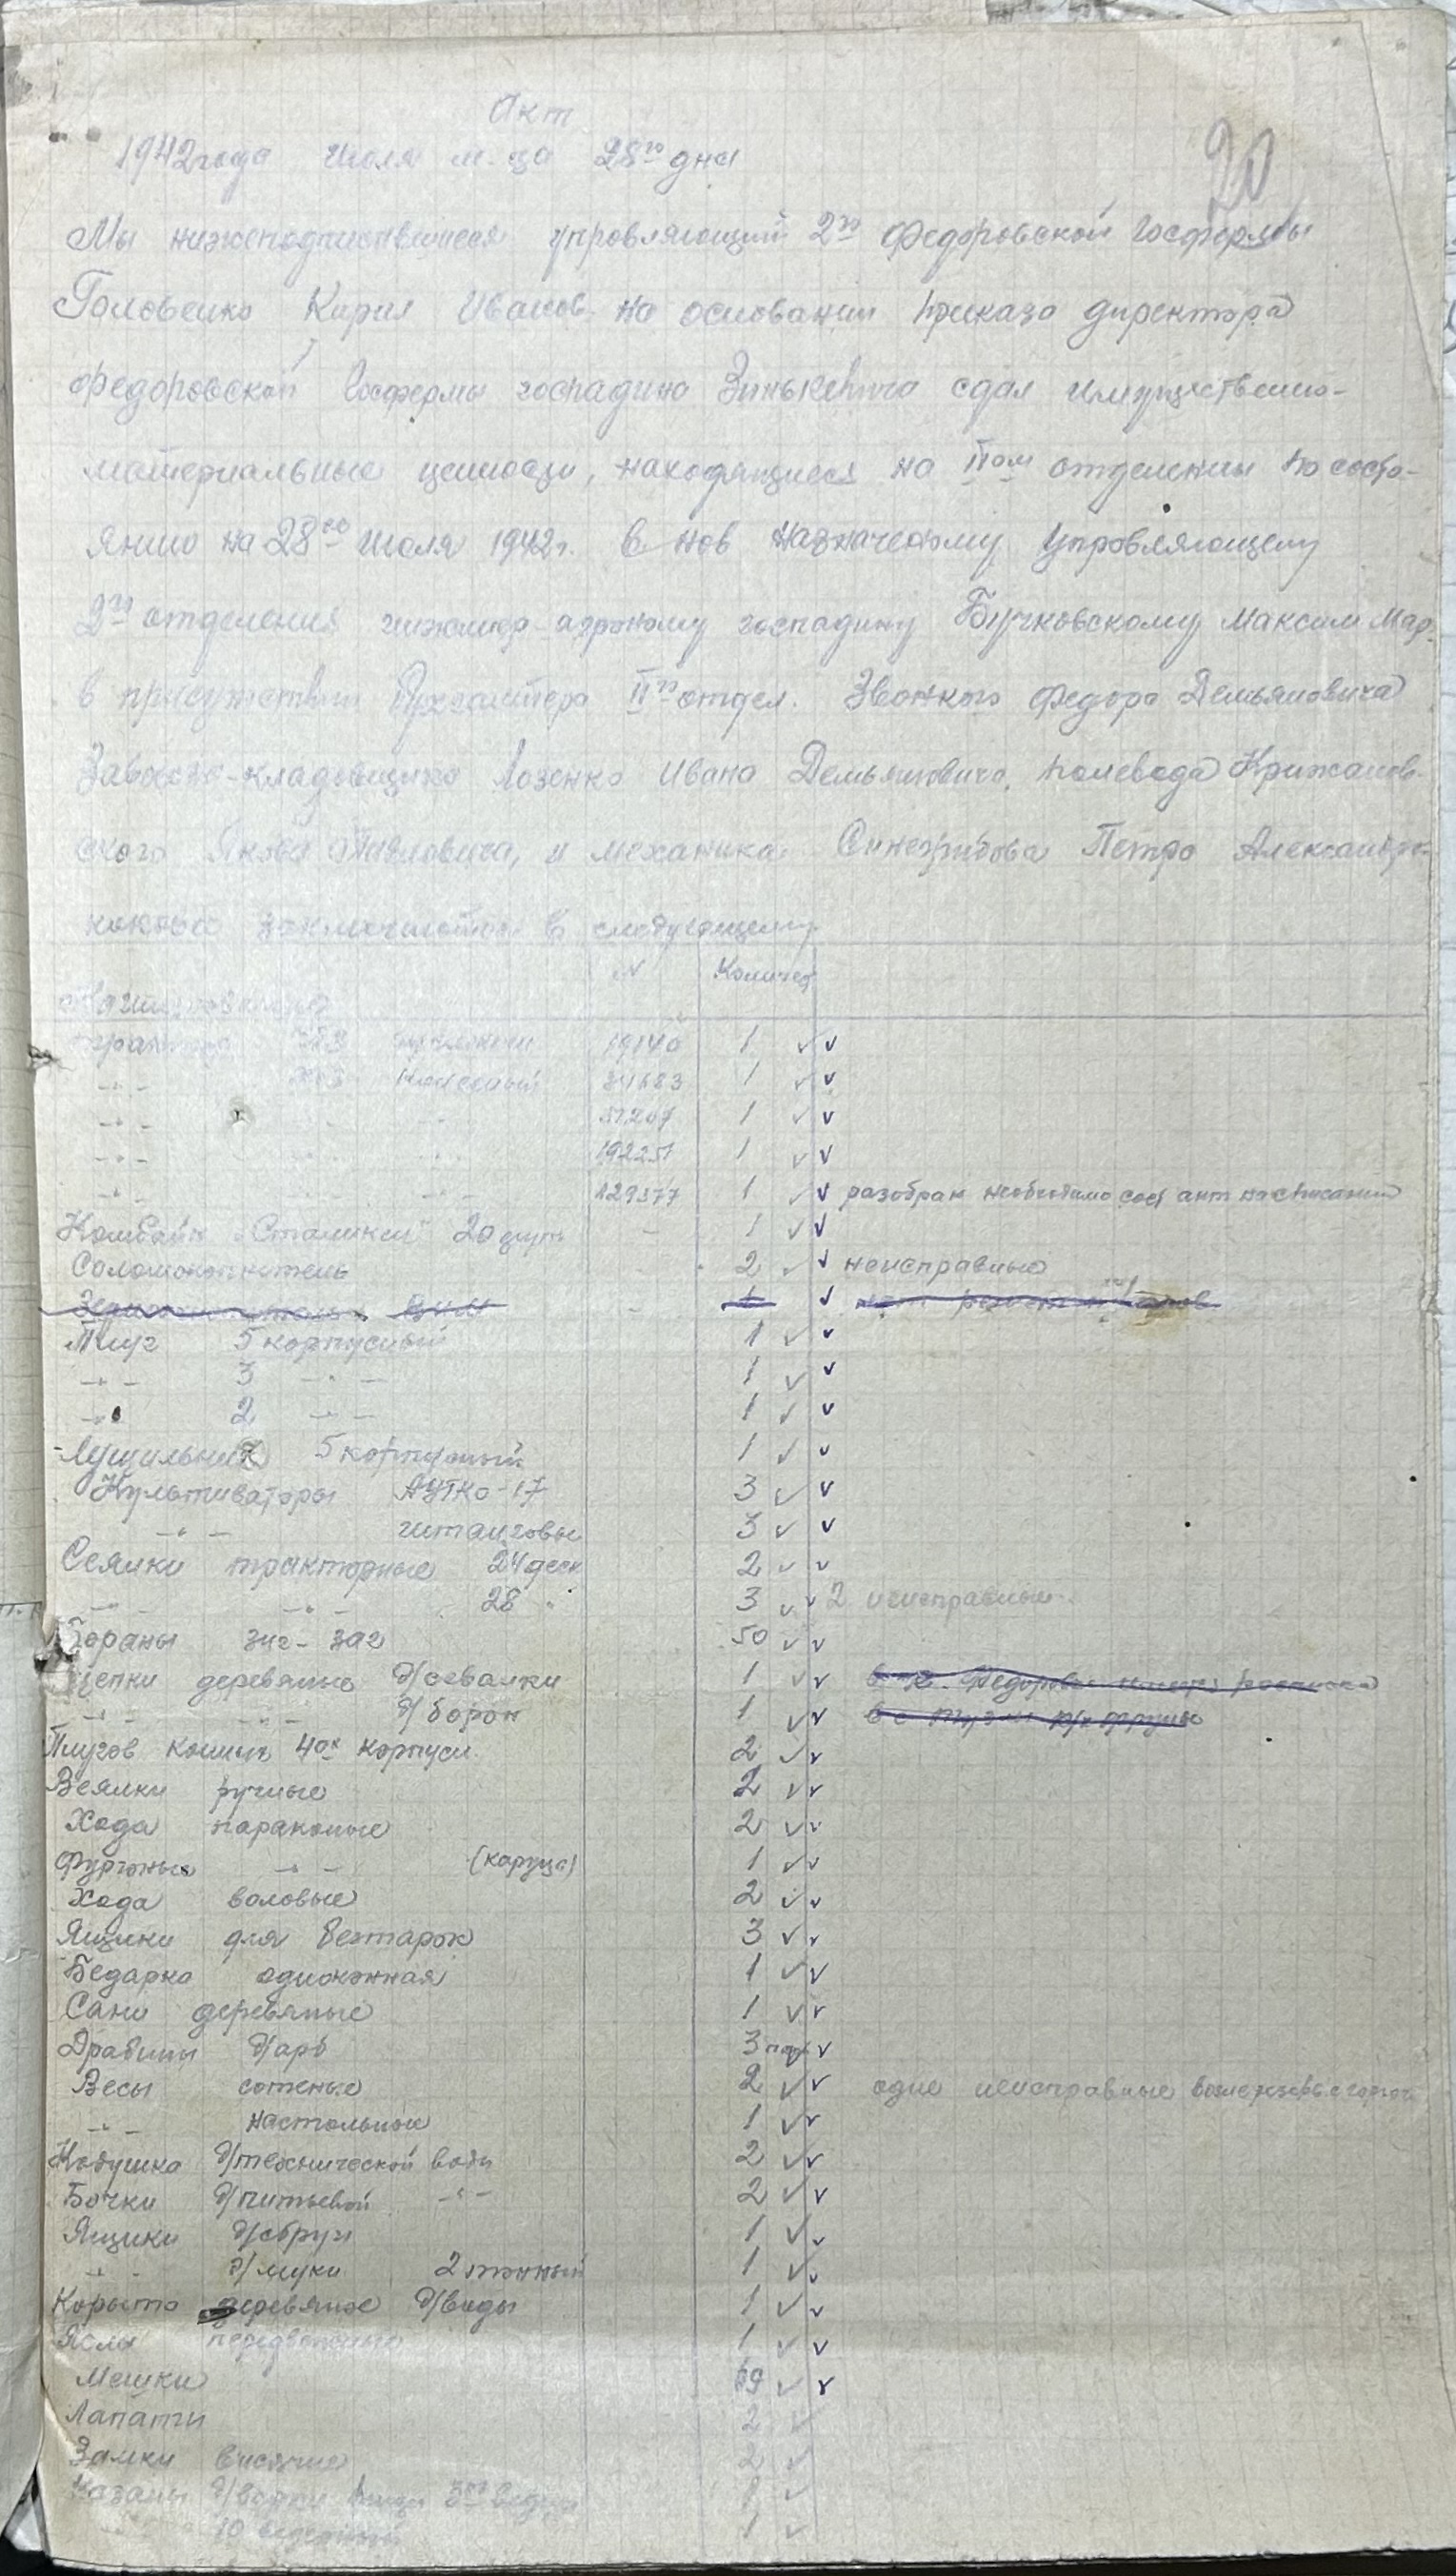 Акт
20
1942 года Июля м-ца 28го дня
Мы нижеподписавшиеся упровляющий 2го Федоровской Госфермы
Головенко Кирил Иванов. на основании приказа директора
Федоровской Госфермы господина Зинькевича сдал имущественно-
материальные ценности, находящиеся на IIом отделении по состо-
янию на 28ое Июля 1942г. в нов назначеному Упровляющему
2го отделения агроному господину Бучковскому Максим Мар.
в присутствии Бухгалтера IIго отдел. Звонкого Федора Демьяновича
Завхоза-кладовщика Лозенко Ивана Демьяновича, полевода Крижанов-
ского Якова Павловича, и механика Синегрибова Петра Александро-
в следующему
N Количес
19140 1
34683 1
51267 1
192251 1
129377 1 разобран необходимо сост акт на списании
Комбайн "Сталинец" 20 фут - 1
Соломокопнитель 2 неисправные
Плуг 5 корпусный 1
-"- 3 -"- 1
-"- 2 -"- 1
Лущильник 5 корпусный 1
Культиваторы АУТКО-17 3
-"- штанговые 3
Сеялки тракторные 24 диск 2
-"- -"- 28 " 3 2 неисправные
Бораны зиг-заг 50
Цепки деревяные д/севалки 1
-"- -"- д/борон 1
Плугов конных 4ох корпусн. 2
Веялки ручные 2
Хода пароконые 2
Фургоны -"- (каруца) 1
Хода воловые 2
Ящики для безтарок 3
Бедарка одноконная 1
Сани деревяные 1
Драбины д/арб 3 пар
Весы сотеные 2 одне неисправные
-"- настольные 1
Кадушка д/технической воды 2
Бочки д/питьевой -"- 2
Ящики д/сбруи 1
-"- д/муки 2 тонный 1
Корыто деревяное д/воды 1
Ясли передвежные 1
Мешки 69
Лапати 2
Замки висячие 2
Казаны д/варки пищи 1
10 ведерный 1